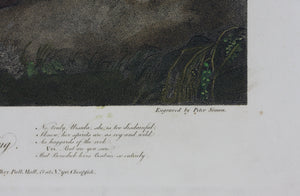 Engraved by Peter Simon.
No, truly, Ursula, she is too disdainful;
I know, her spirits are as coy and wild
As haggards of the rock.
Urs. But are you sure
That Benedick loves Beatrice so entirely
Pall Mall, & at No. 90 Cheapside.